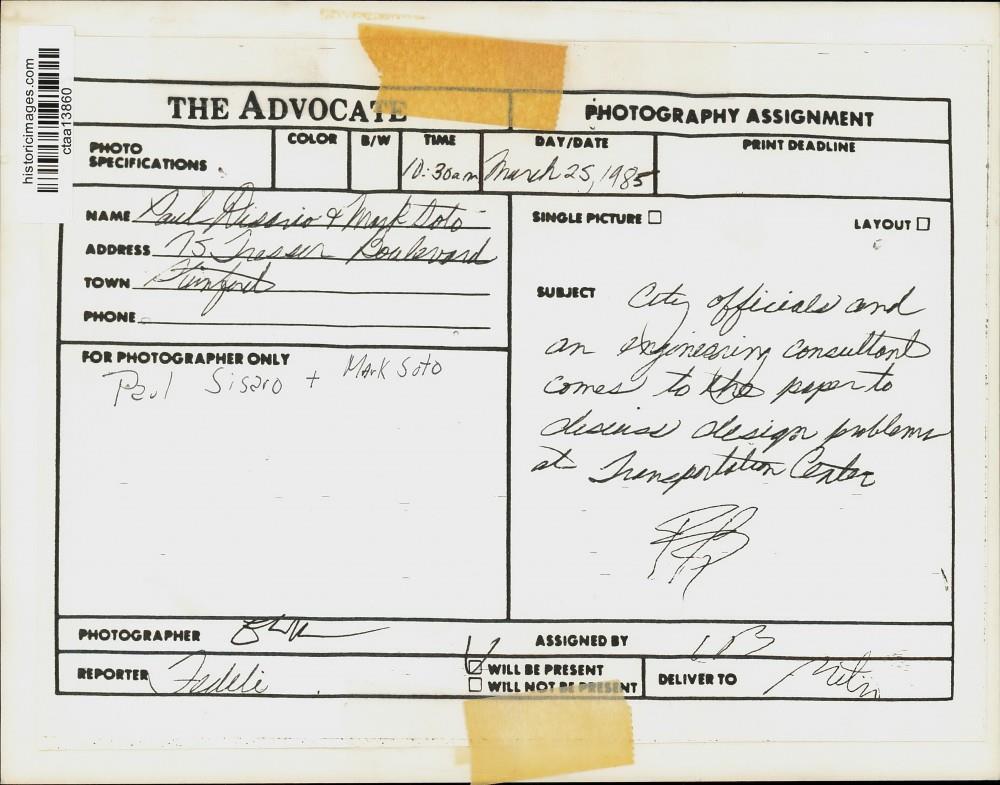 historicimages.com
ctaa13860
THE ADVOCATE
PHOTOGRAPHY ASSIGNMENT
PHOTO SPECIFICATIONS
COLOR
B/W
TIME
10:30am
DAY/DATE
March 25, 1985
PRINT DEADLINE
NAME Paul & Mark Soto
ADDRESS 75 Tresser Boulevard
TOWN Stamford
PHONE
SINGLE PICTURE
LAYOUT
SUBJECT City officials and
an engineering consultant
comes to the paper to
discuss design problems
at Transportation Center
FOR PHOTOGRAPHER ONLY
Paul Sisaro + Mark Soto
PHOTOGRAPHER
ASSIGNED BY
REPORTER Fedeli
WILL BE PRESENT
WILL NOT BE PRESENT
DELIVER TO Metro